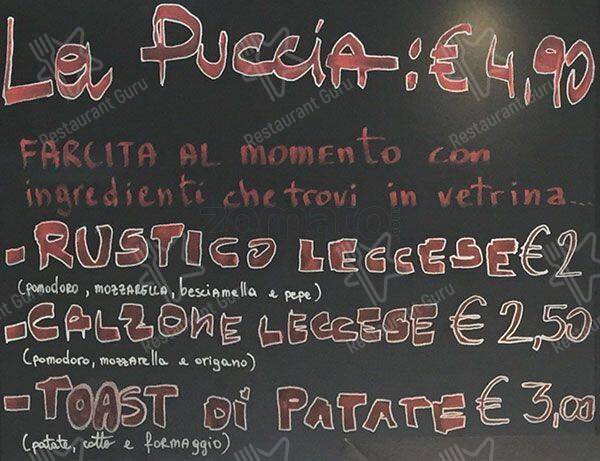 La Puccia: € 4,90
FARCITA AL MOMENTO CON
ingredienti che trovi in vetrina...
- RUSTICO LECCESE € 2
(pomodoro, MOZZARELLA, besciamella e pepe)
- CALZONE LECCESE € 2,50
(pomodoro, mozzarella e origano)
- TOAST Di PATATE € 3,00
(patate, cotto e FORMAGGIO)
Restaurant Guru
zomato